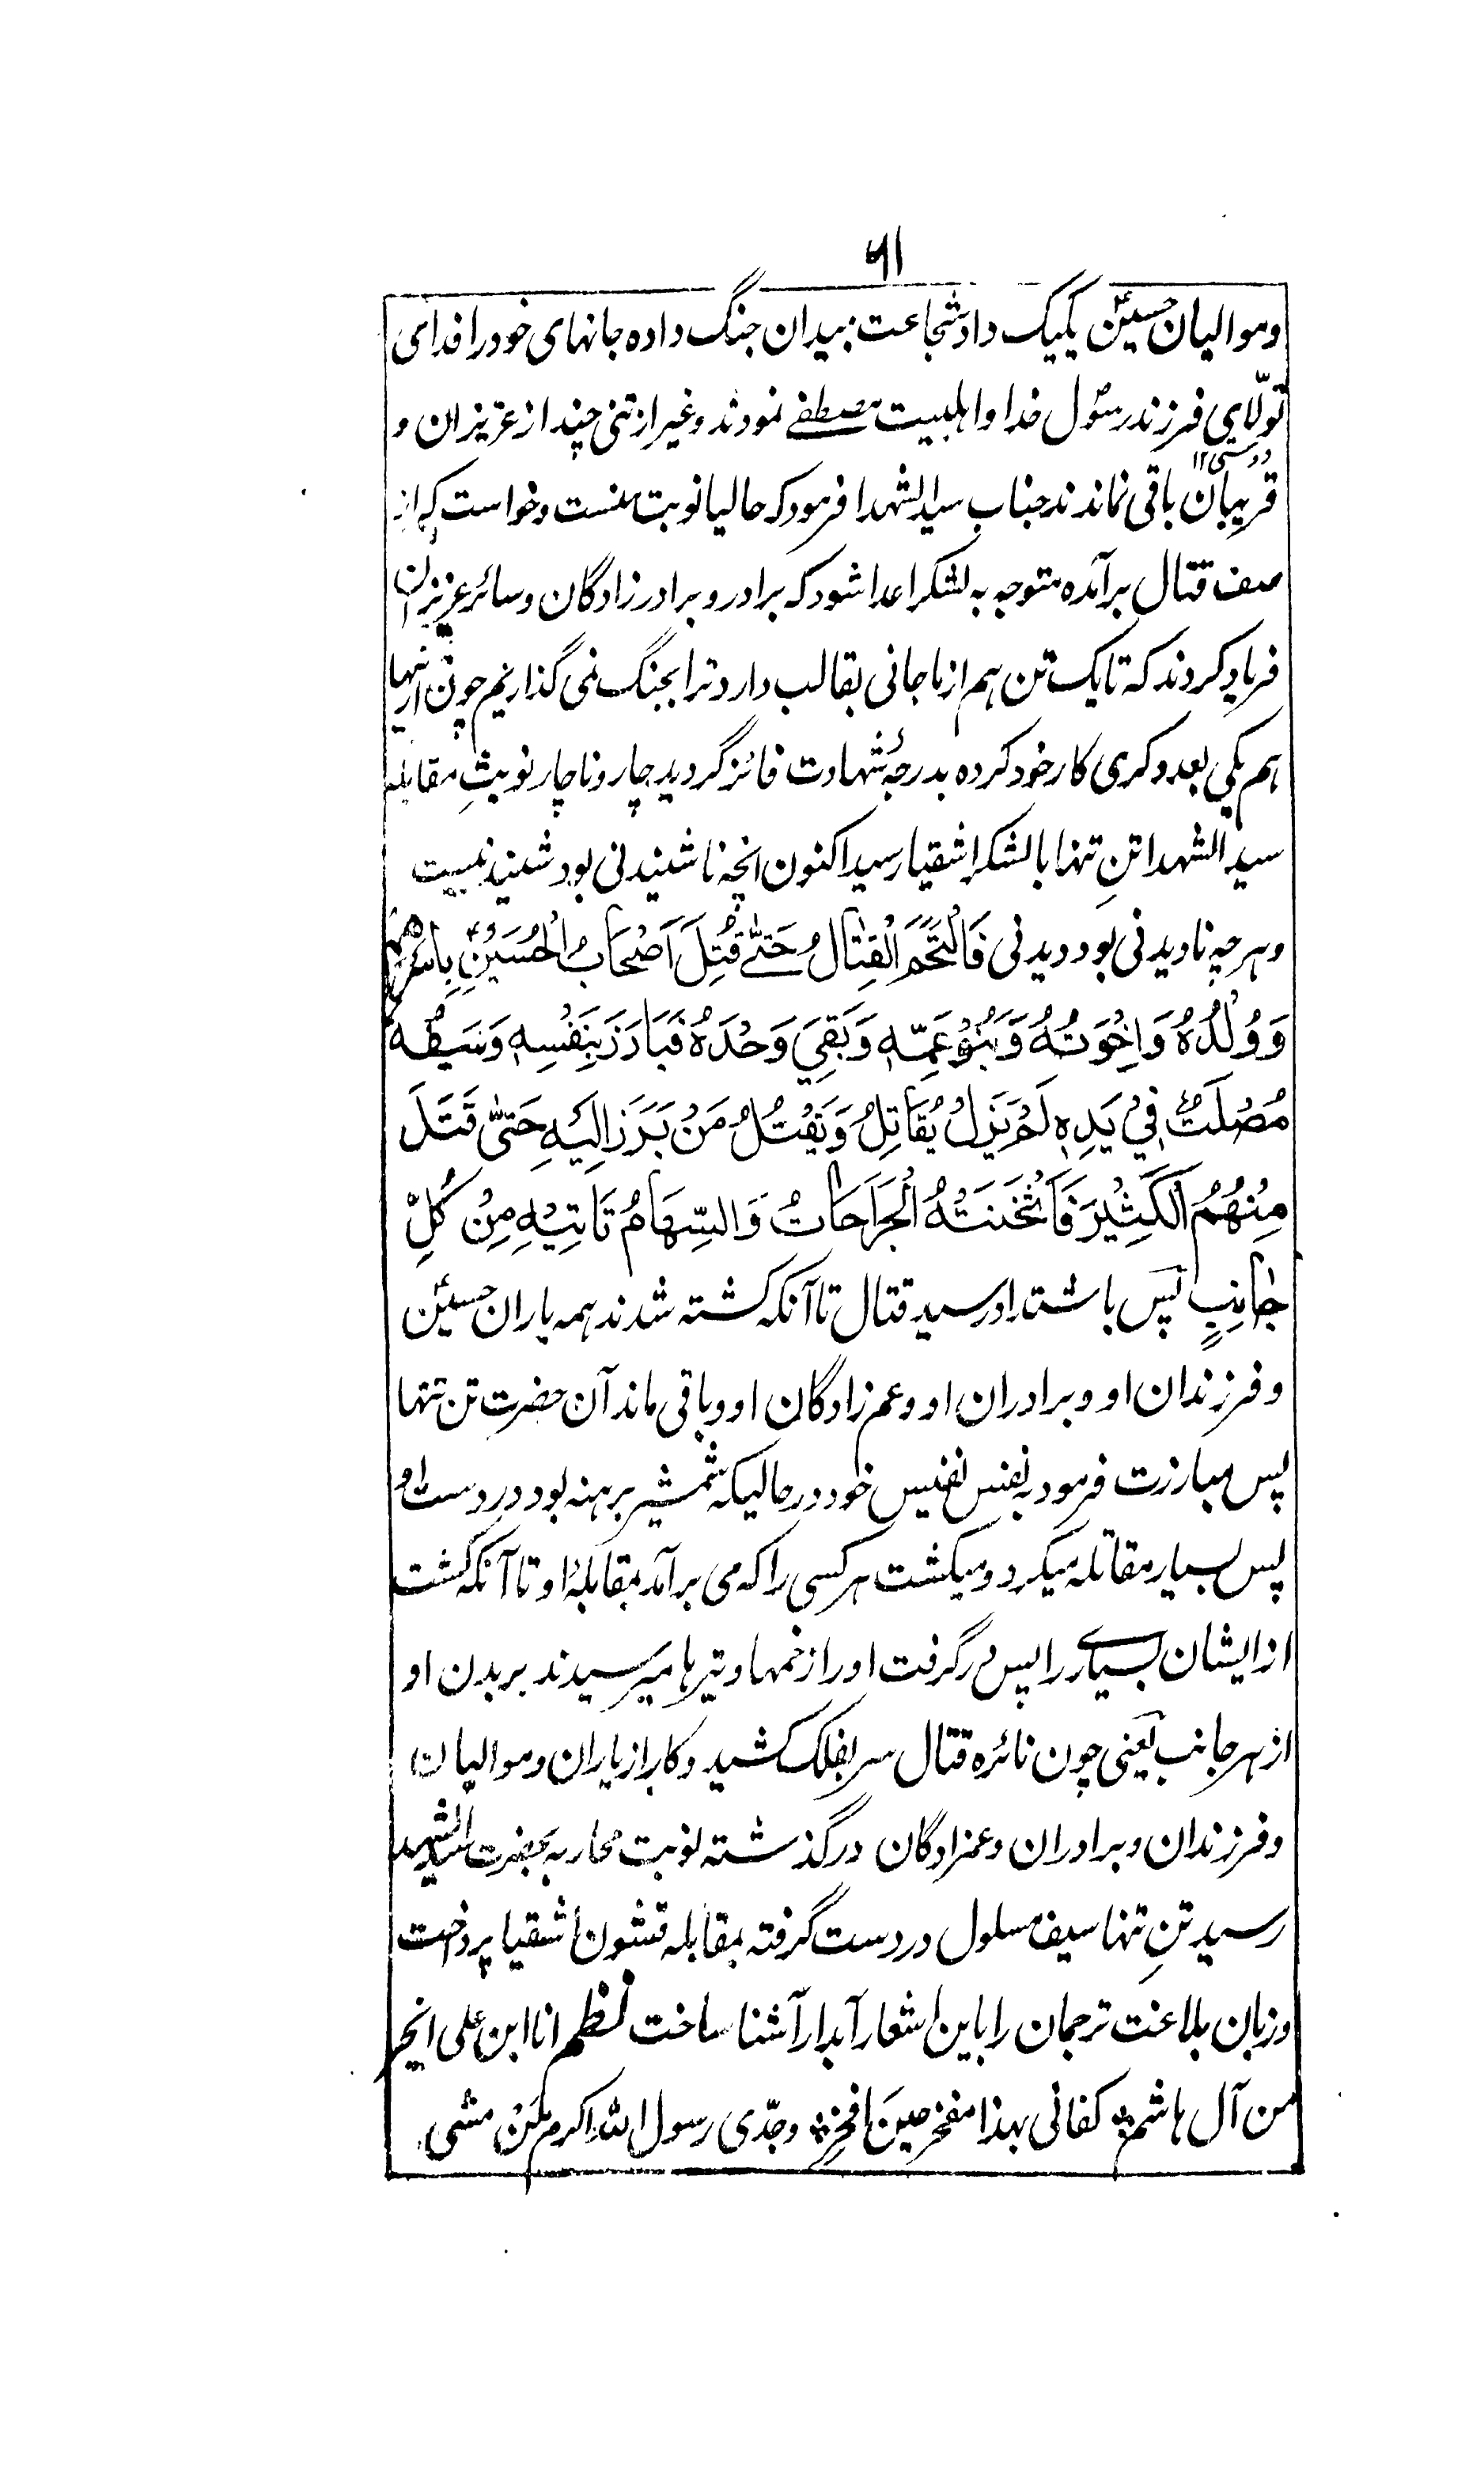 ۶۱
وموالیان حسینؑ یکیک داد شجاعت بمیدان جنگ داده جانهای خود را فدای
تولّایی فرزند رسول خدا و اہلبیت مصطفے نمودند و غیر از تنی چند از عزیزان و
دوستی۱۲
قریبان باقی نماندند جناب سید الشہدا فرمود کہ حالیا نوبت منست و خواست کہ از
صف قتال برآمدہ متوجہ بہ لشکر اعدا شود کہ برادر و برادرزادگان و سائر عزیزان
فریاد کردند کہ تا یک تن ہم از ما جانی بقالب دارد ترا بجنگ نمی گذاریم چون از نہا
ہم یکی بعد دگری کار خود کردہ بدرجۂ شہادت فائز گردید چار و ناچار نوبتِ مقابلہ
سید الشہدا تنِ تنہا با لشکر اشقیا رسید اکنون انچہ ناشنیدنی بود شنیدنیست
و ہرچہ نادیدنی بود دیدنی فَالْتَحَمَ الْقِتَالُ حَتّٰی قُتِلَ اَصْحَابُ الْحُسَیْنِؑ بِاَسْرِهِمْ
وَوُلْدُهُ وَاِخْوَتُهُ وَبَنُوْعَمِّهٖ وَبَقِيَ وَحْدَهُ فَبَارَزَ بِنَفْسِهٖ وَسَيْفُهٗ
مُصْلَتٌ فِيْ يَدِهٖ لَمْ يَزَلْ يُقَاتِلُ وَيَقْتُلُ مَنْ بَرَزَ اِلَيْهِ حَتّٰی قَتَلَ
مِنْهُمُ الْكَثِيْرَ فَاَثْخَنَتْهُ الْجَرَاحَاتُ وَالسِّهَامُ تَاتِيْهِ مِنْ كُلِّ
جَانِبٍ پس باشتداد رسید قتال تا آنکہ کشتہ شدند ہمہ یاران حسینؑ
و فرزندان او و برادران او و عم زادگان او و باقی ماند آن حضرت تن تنہا
پس مبارزت فرمود بہ نفس نفیس خود در حالیکہ شمشیر برہنہ بود در دست او
پس بسیار مقاتلہ میکرد و میکشت ہر کسی را کہ می برآمد بمقابلۂ او تا آنکہ کشت
از ایشان بسیارے را پس در گرفت او را زخمہا و تیرہا میرسیدند بر بدن او
از ہر جانب یعنی چون نائرہ قتال سر بفلک کشید و کار از یاران و موالیان
و فرزندان و برادران و عمزادگان در گذشتہ نوبت محاربہ بحضرت سید الشہدا
رسید تنِ تنہا سیف مسلول در دست گرفتہ بمقابلہ قشون اشقیا پرداخت
و زبان بلاغت ترجمان را باین اشعار آبدار آشنا ساخت نظم انا ابن علی الخیر
من آل ہاشم؞ کفانی بہذا مفخر حینَ افخر؞ وجدّی رسول اللہ اکرم مَنْ مشی